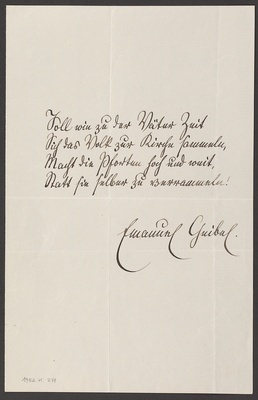 Soll wie zu der Väter Zeit
Sich das Volk zur Kirche sammeln,
Macht die Pforten hoch und weit,
Statt sie selber zu verrammeln!
Emanuel Geibel.